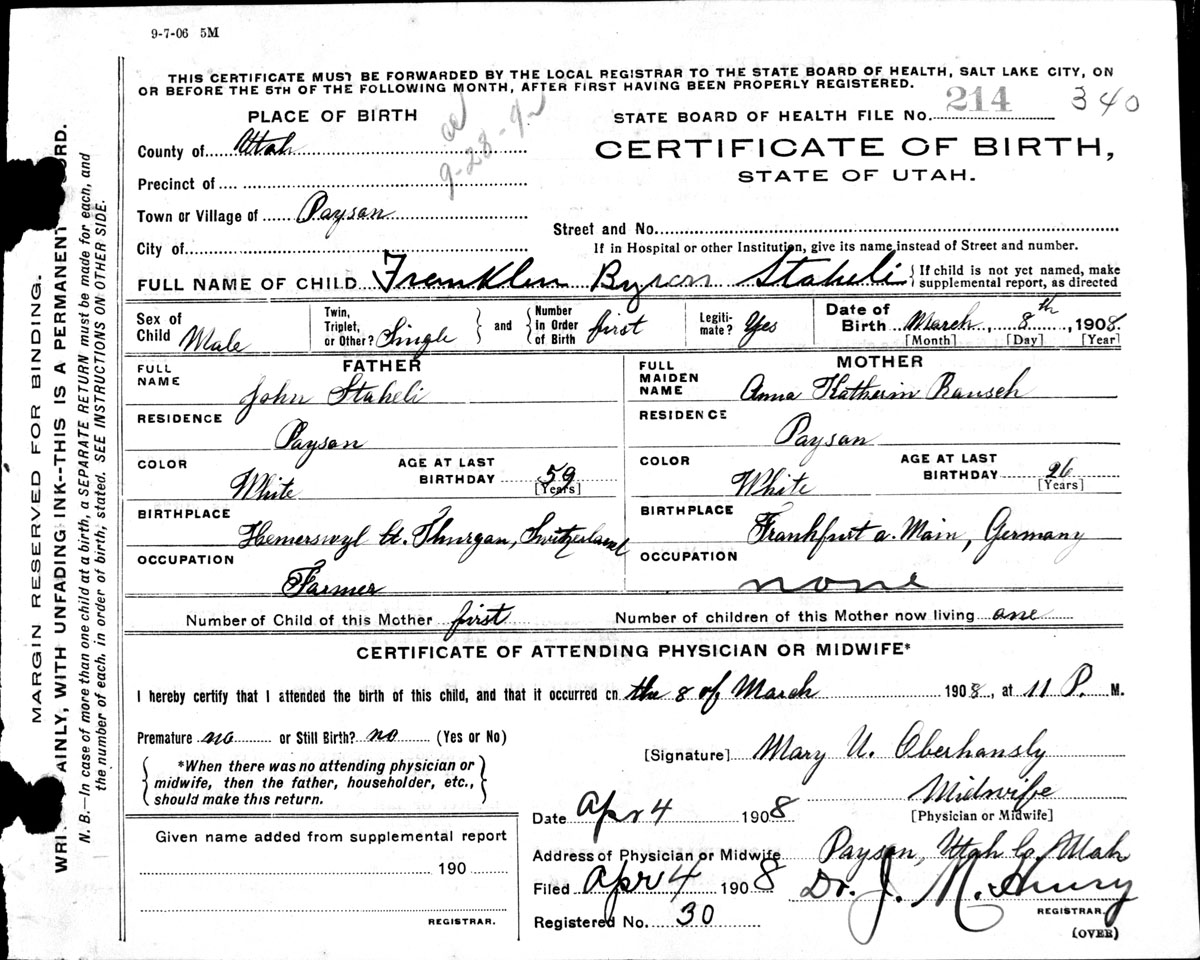 9-7-06 5M
THIS CERTIFICATE MUST BE FORWARDED BY THE LOCAL REGISTRAR TO THE STATE BOARD OF HEALTH, SALT LAKE CITY, ON
OR BEFORE THE 5TH OF THE FOLLOWING MONTH, AFTER FIRST HAVING BEEN PROPERLY REGISTERED.
PLACE OF BIRTH
STATE BOARD OF HEALTH FILE No. 214 340
County of Utah
9-28-9
CERTIFICATE OF BIRTH,
STATE OF UTAH.
Precinct of
Town or Village of Payson
Street and No.
City of
If in Hospital or other Institution, give its name instead of Street and number.
FULL NAME OF CHILD Franklin Byron Staheli { If child is not yet named, make
supplemental report, as directed
Sex of Child Male
Twin, Triplet, or Other? Single } and { Number In Order of Birth first
Legiti-mate? Yes
Date of Birth March 8th, 1908.
[Month] [Day] [Year]
FATHER
FULL NAME John Staheli
RESIDENCE Payson
COLOR White
AGE AT LAST BIRTHDAY 59
[Years]
BIRTHPLACE Hemerswyl Ct. Thurgan, Switzerland
OCCUPATION Farmer
MOTHER
FULL MAIDEN NAME Anna Katherin Rausch
RESIDENCE Payson
COLOR White
AGE AT LAST BIRTHDAY 26
[Years]
BIRTHPLACE Frankfurt a. Main, Germany
OCCUPATION none
Number of Child of this Mother first
Number of children of this Mother now living one
CERTIFICATE OF ATTENDING PHYSICIAN OR MIDWIFE*
I hereby certify that I attended the birth of this child, and that it occurred on the 8 of March 1908, at 11 P. M.
Premature no or Still Birth? no (Yes or No)
*When there was no attending physician or
midwife, then the father, householder, etc.,
should make this return.
[Signature] Mary U. Oberhansly
Midwife
[Physician or Midwife]
Date Apr 4 1908
Given name added from supplemental report
190
REGISTRAR.
Address of Physician or Midwife Payson, Utah Co. Utah
Filed Apr 4 1908 Dr. J.
REGISTRAR.
Registered No. 30
(OVER)
MARGIN RESERVED FOR BINDING.
WRI AINLY, WITH UNFADING INK--THIS IS A PERMANENT ORD.
N. B.—In case of more than one child at a birth, a SEPARATE RETURN must be made for each, and
the number of each, in order of birth, stated. SEE INSTRUCTIONS ON OTHER SIDE.